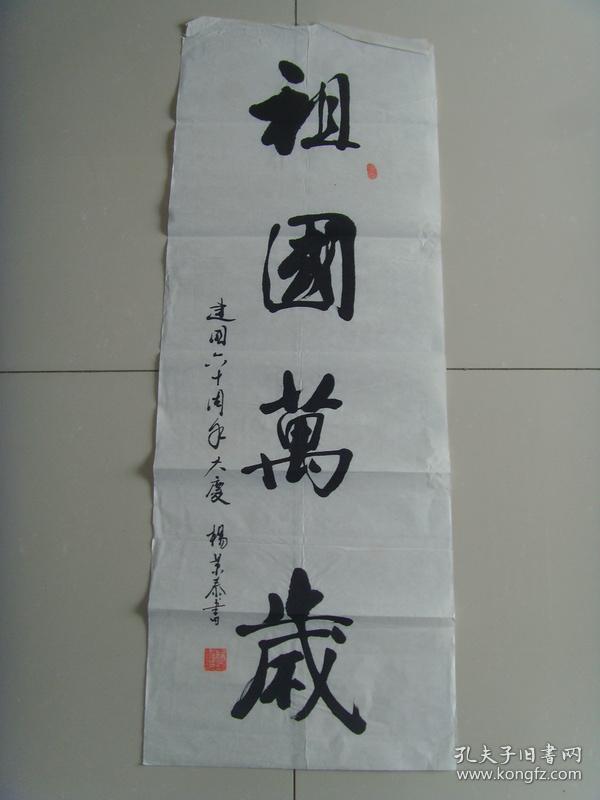 祖國萬歲
建国六十周年大慶 楊荣泰書
孔夫子旧书网
www.kongfz.com